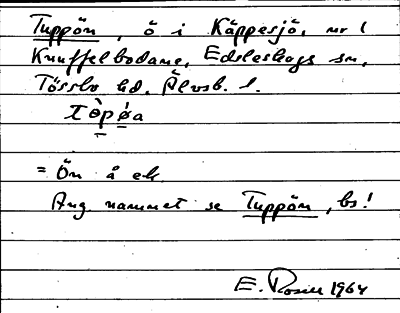 Tuppön, ö i Käppesjö, nr 1
Knuffelbodane, Edsleskogs sn,
Tössbo hd. Älvsb. l.
tòpøa
= Ön å ek
Ang. namnet se Tuppön, bs!
E. Rosén 1964